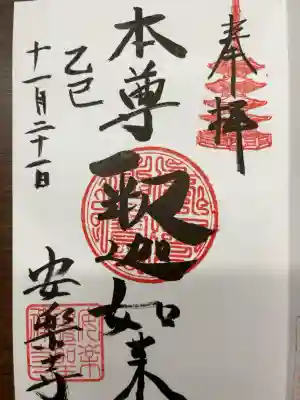 奉拝
本尊 釈迦如来
乙巳
十一月二十一日
安樂寺